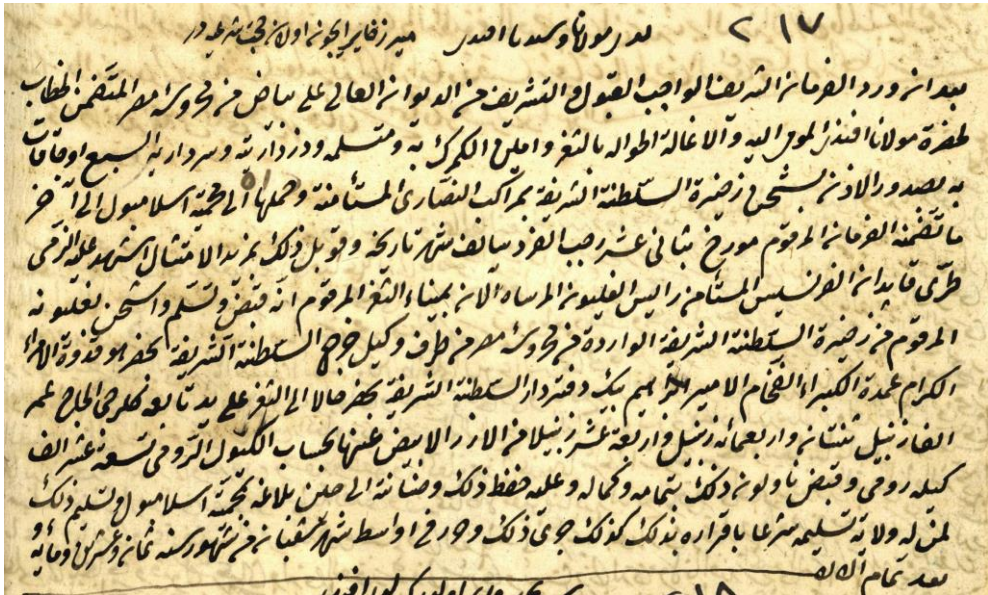 ٢١٧ لدى مولانا وسيدنا افندى
بعد ان ورد الفرمان الشريف الواجب القبول والتشريف من الديوان العالى على بياض من محروسة مصر المتضمن الخطاب
لحضرة مولانا افندى المومى اليه والاغاة الحواله بالثغر وامين الكمرك به ومتسلمه ودزدارية وسردارية السبع اوجاقات
به بصدور الاذن بشحن ذخيرة السلطنة الشريفة بمراكب النصارى المستأمنة وحملها الى محمية اسلامبول الى آخر
ما تضمنه الفرمان المرقوم مورخ بثانى عشر رجب الفرد سالف شهر تاريخه وقوبل ذلك بمزيد الامتثال اشهد عليه الذمى
قاپدان الفرنسيس المستأمن رايس الغليون المرساه الان بميناء الثغر المرقوم انه قبض وتسلم واشحن بغليونه
المرقوم من ذخيرة السلطنة الشريفة الواردة من محروسة مصر من طرف وكيل خرج السلطنة الشريفة بمصر هو قدوة الامراء
الكرام عمدة الكبراء الفخام الامير ابراهيم بيك دفتردار السلطنة الشريفة بمصر حالا الى الثغر على يد تابعه الحاج عمر
الفا زنبيل ثنتان واربعمائة زنبيل واربعة عشر زنبيلا من الارز الابيض عنها بحساب الكيل الرومى تسعة عشر الف
كيلة رومى وقبض ناولون ذلك بتمامه وكماله وعليه حفظ ذلك وضمانته الى حين بلاغه محمية اسلامبول وتسليم ذلك
لمن له ولاية تسليمه شرعا باقراره بذلك كذلك جرى ذلك وحرر فى اواسط شهر شعبان من شهور سنة ثمان وعشرين ومايه و
بعد تمام الالف
٢١٨